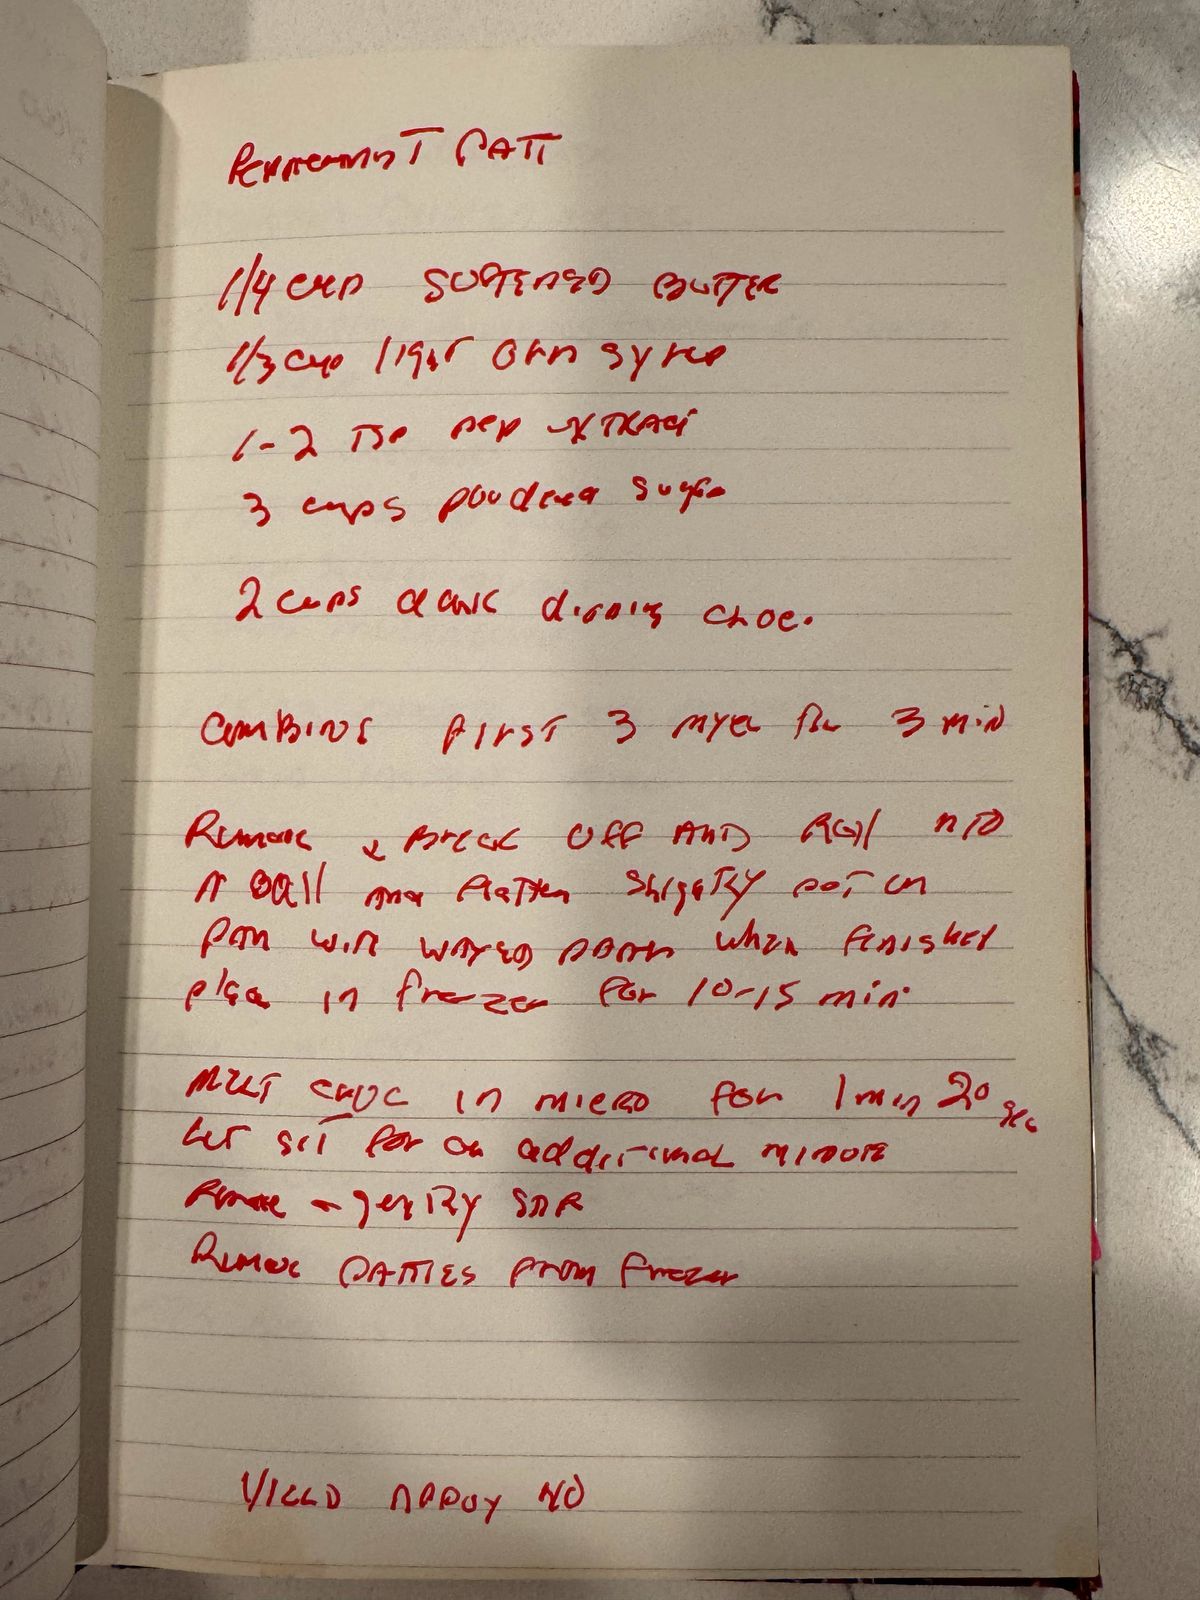 Peppermint Patt
1/4 cup SOFTENED BUTTER
1/3 cup light Corn syrup
1-2 TSP pep extract
3 cups powdered sugar
2 cups dark dipping choc.
COMBINE FIRST 3 mixer for 3 min
Remove & Break OFF AND Roll into
A Ball and flatten slightly put on
pan with waxed paper when finished
place in freezer for 10-15 min.
MELT CHOC in micro for 1 min 20 sec
Let sit for an additional minute
Remove - gently stir
Remove PATTIES from freezer
YIELD APPOX 40